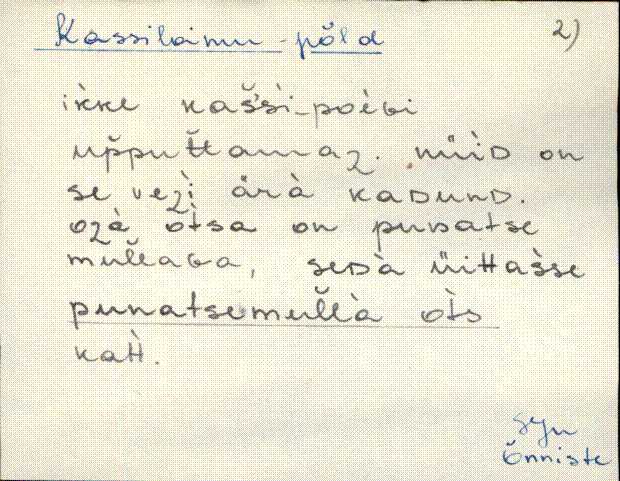 Kassiloimu-põld 2)
ikke kašši-poèGi
upputtamaz. müiD on
se vezì ärà kaDunD.
ozà òtsa on punatse
mullaGa, seDà üittašse
punatsemullà òts
kaìt.
syn
Õnniste